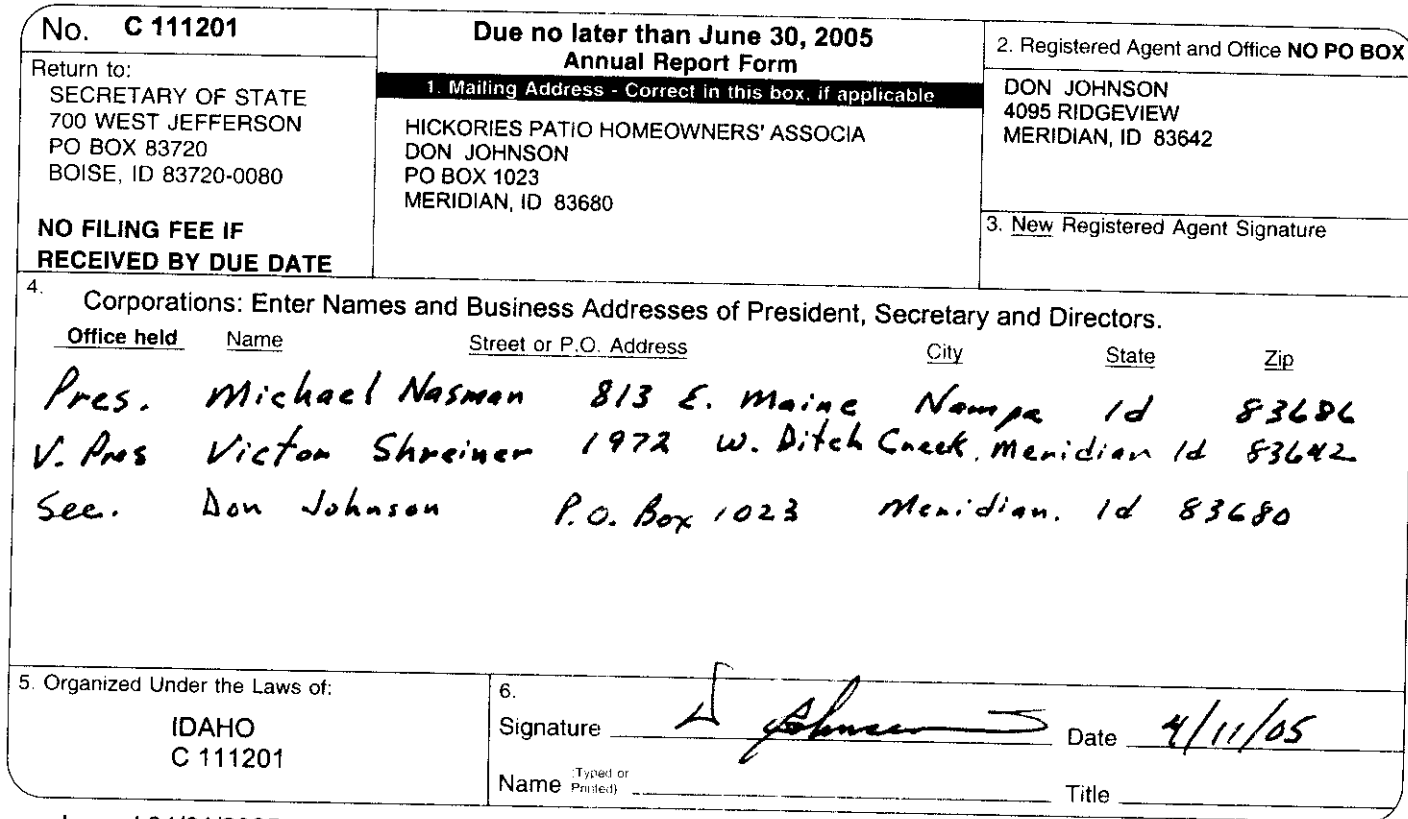 No. C 111201
Return to:
SECRETARY OF STATE
700 WEST JEFFERSON
PO BOX 83720
BOISE, ID 83720-0080
NO FILING FEE IF
RECEIVED BY DUE DATE
Due no later than June 30, 2005
Annual Report Form
1. Mailing Address - Correct in this box, if applicable
HICKORIES PATIO HOMEOWNERS' ASSOCIA
DON JOHNSON
PO BOX 1023
MERIDIAN, ID 83680
2. Registered Agent and Office NO PO BOX
DON JOHNSON
4095 RIDGEVIEW
MERIDIAN, ID 83642
3. New Registered Agent Signature
4. Corporations: Enter Names and Business Addresses of President, Secretary and Directors.
Office held Name Street or P.O. Address City State Zip
Pres. Michael Nasman 813 E. Maine Nampa Id 83686
V. Pres Victor Shreiner 1972 W. Ditch Creek, Meridian Id 83642
Sec. Don Johnson P.O. Box 1023 Meridian. Id 83680
5. Organized Under the Laws of:
IDAHO
C 111201
6.
Signature D Johnson Date 4/11/05
Name (Typed or Printed) Title